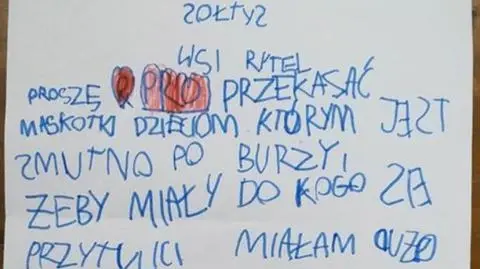 SOŁTYS
WSI RYTEL
PROSZĘ O PRO PRZEKASAĆ
MASKOTKI DZIECIOM KTÓRYM JEST
SMUTNO PO BURZY,
ŻEBY MIAŁY DO KOGO SIĘ
PRZYTULIĆ MIAŁAM DUZO